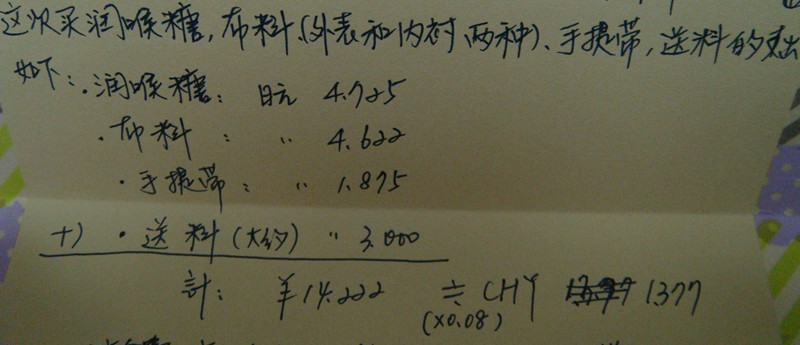 这次买润喉糖,布料(外表和内衬、两种)、手提带,送料的支出
如下:·润喉糖: 日元 4.725
·布料: 〃 4.622
·手提带: 〃 1.875
+) ·送料(大约) 〃 3.000
計: ¥14.222 ≒ CHY 1377
(×0.08)